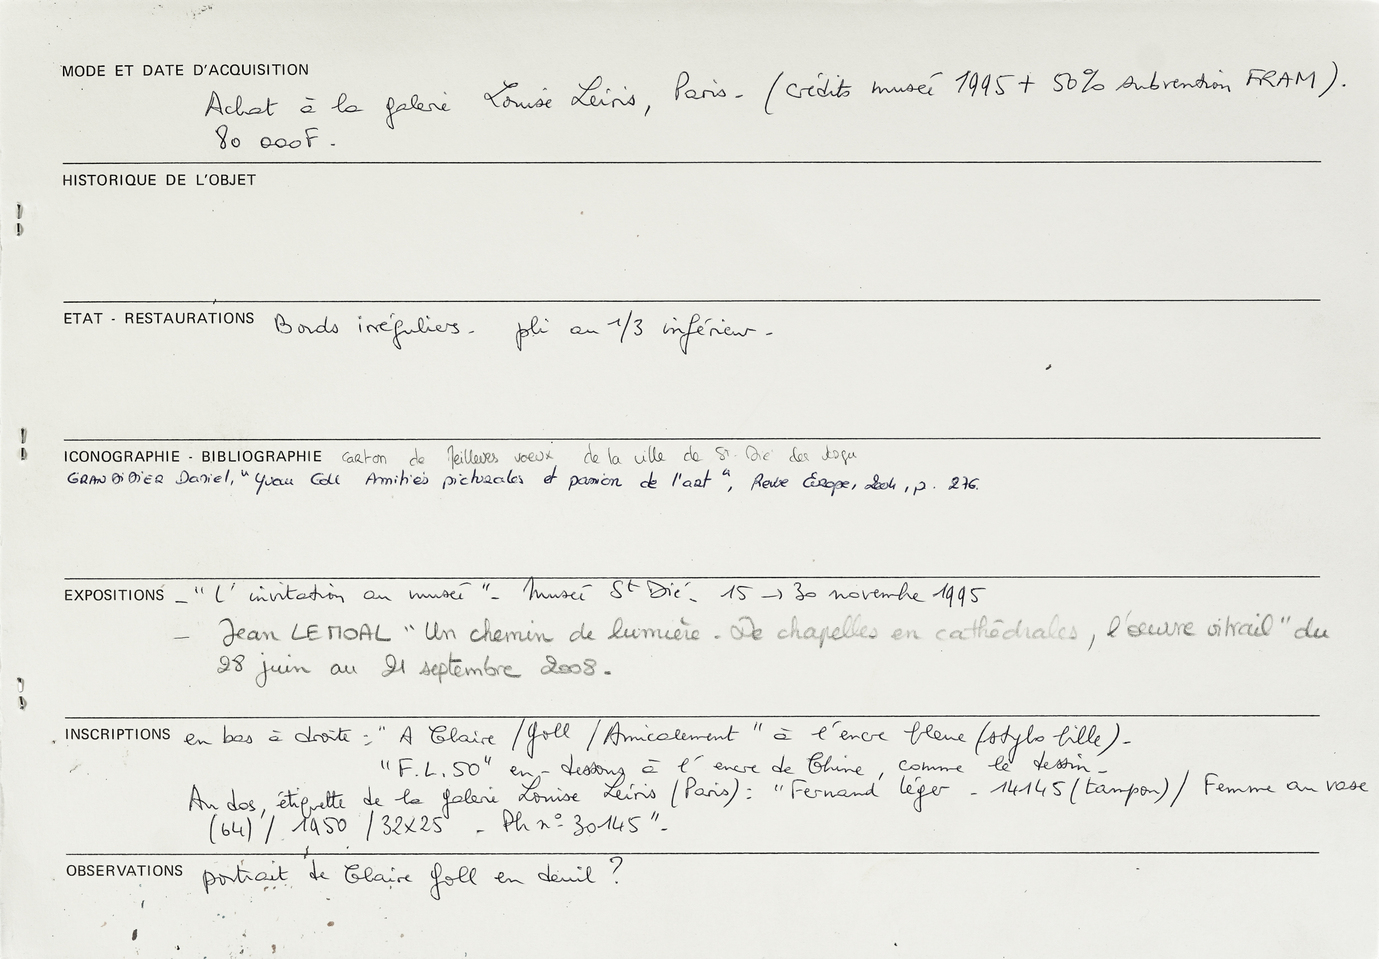 MODE ET DATE D'ACQUISITION
Achat à la galerie Louise Leiris, Paris - (crédits musée 1995 + 50% subvention FRAM).
80 000F.
HISTORIQUE DE L'OBJET
ETAT - RESTAURATIONS Bords irréguliers - pli au 1/3 inférieur -
ICONOGRAPHIE - BIBLIOGRAPHIE carton de Meilleurs voeux de la ville de St-Dié des Vosges
GRANDIDIER Daniel, "Yvan Goll Amitiés picturales et passion de l'art", Revue Europe, 2004, p. 276.
EXPOSITIONS - "L'invitation au musée" - Musée St Dié - 15 → 30 novembre 1995
- Jean LE MOAL "Un chemin de lumière. De chapelles en cathédrales, l'oeuvre vitrail" du
28 juin au 21 septembre 2008.
INSCRIPTIONS en bas à droite : "A Claire / Goll / Amicalement" à l'encre bleue (stylo bille) -
"F.L. 50" en-dessous à l'encre de Chine, comme le dessin -
Au dos, étiquette de la galerie Louise Leiris (Paris) : "Fernand Léger - 14145 (tampon) / Femme au vase
(64) / 1950 / 32x25 - Ph n° 30145" -
OBSERVATIONS portrait de Claire Goll en deuil ?